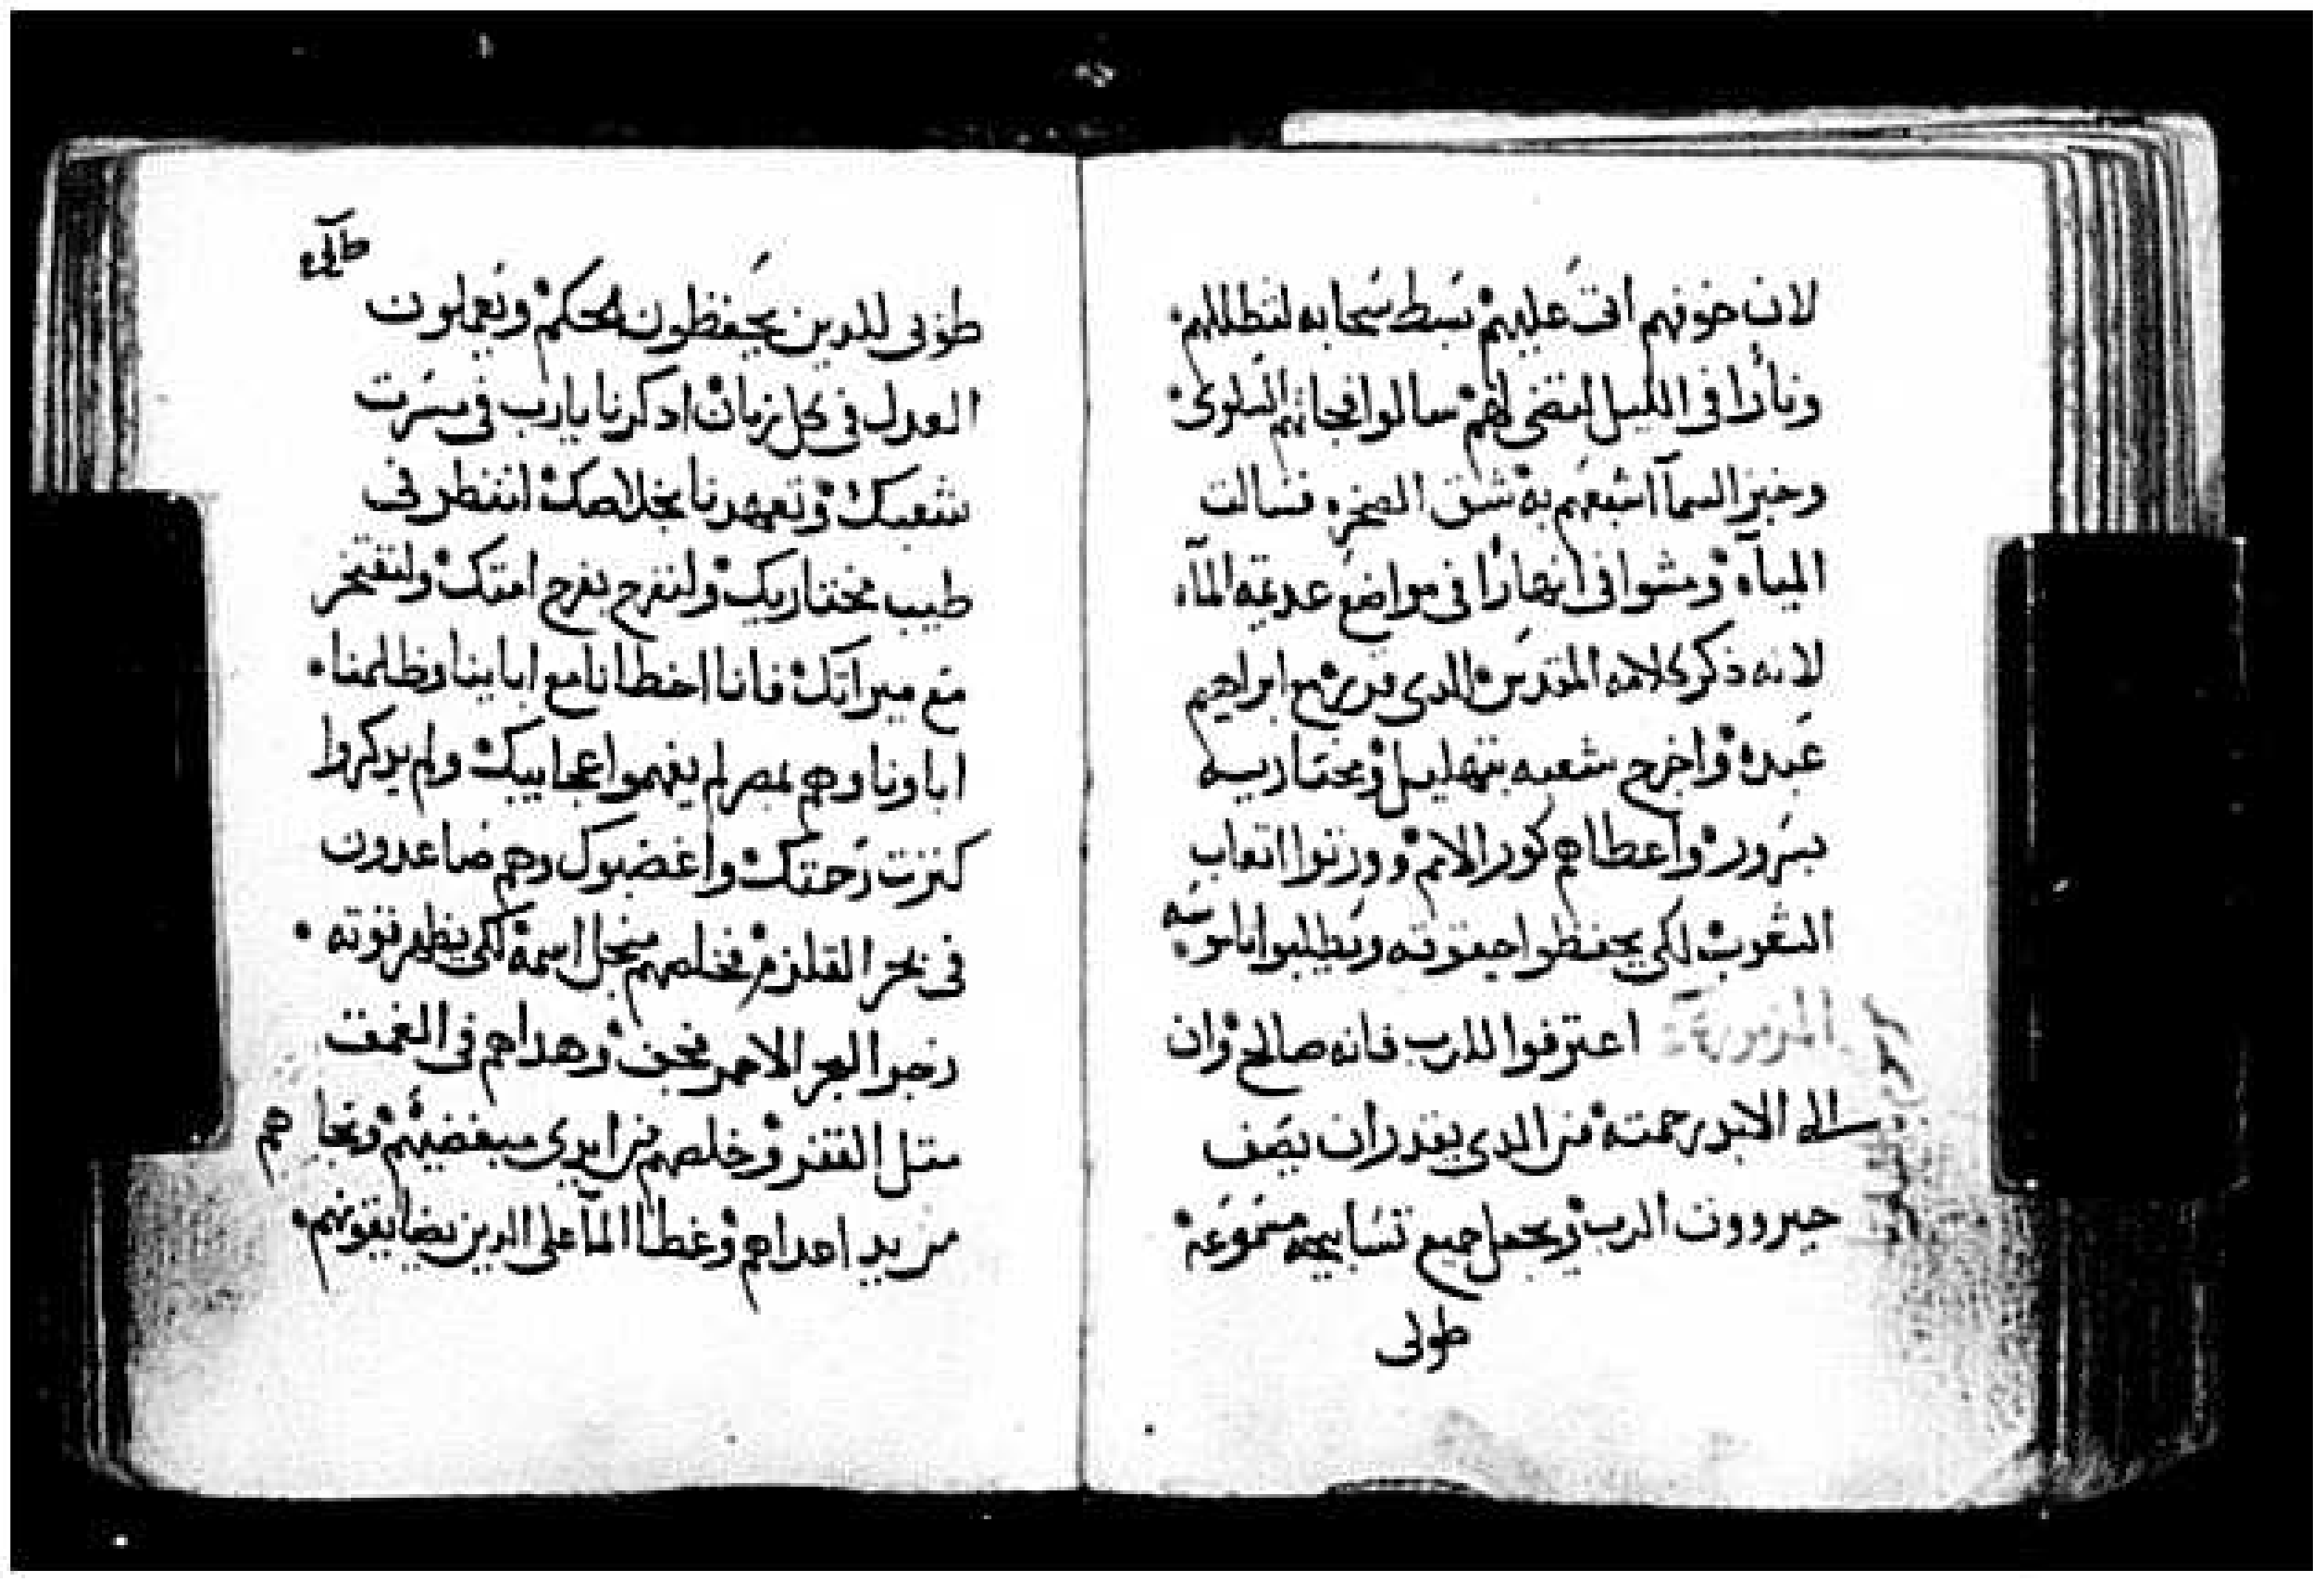 لان خوفهم اتى عليهم بسط سحابه لتظللهم
ونارا فى الليل لتضى لهم سالوا فجاتهم السلوى
وخبز السمآ اشبعهم به شق الصخره فسالت
المياه ومشوا فى انهارا فى مواضع عديمة المآء
لانه ذكر كلامه المقدس الدى مع ابراهيم
عبده واخرج شعبه بتهليل ومختاريه
بسرور واعطاهم كور الامم وورتوا اتعاب
الشعوب لكى يحفظوا حقوقه ويطلبوا ناموسه
المزمور اعترفوا للرب فانه صالح وان
الى الابد رحمته من الدى يقدر ان يصف
جبروت الرب ويجعل جميع تسابيحه مسموعه
طوبى
طوبى للدين يحفظون الحكم ويعملون
العدل فى كل زمان ادكرنا يارب فى مسرت
شعبك وتعهدنا بخلاصك لننظر فى
طيب مختاريك ولنفرح بفرح امتك ولنفتخر
مع ميراتك فانا اخطانا مع اباينا وظلمنا
اباونا وهم بمصر لم يفهموا عجايبك ولم يدكروا
كترت رحمتك واغضبوك وهم صاعدون
فى بحر القلزم فخلصهم منجل اسمه لكى يظهر قوته
زجر البحر الاحمر فجف وهداهم فى الغمق
متل القفر وخلصهم من ايدى مبغضيهم ونجاهم
من يد اعداهم وغطا المآ على الدين يضايقونهم